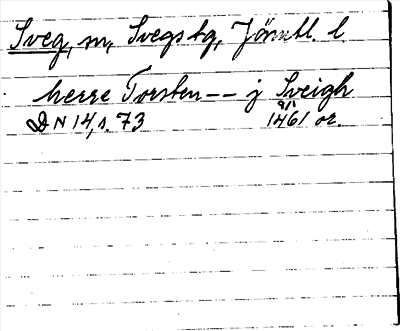 Sveg, m, Svegs tg, Jämtl. l.
herre Torsten -- j Sveigh
DN 14, s. 73 1461 or.